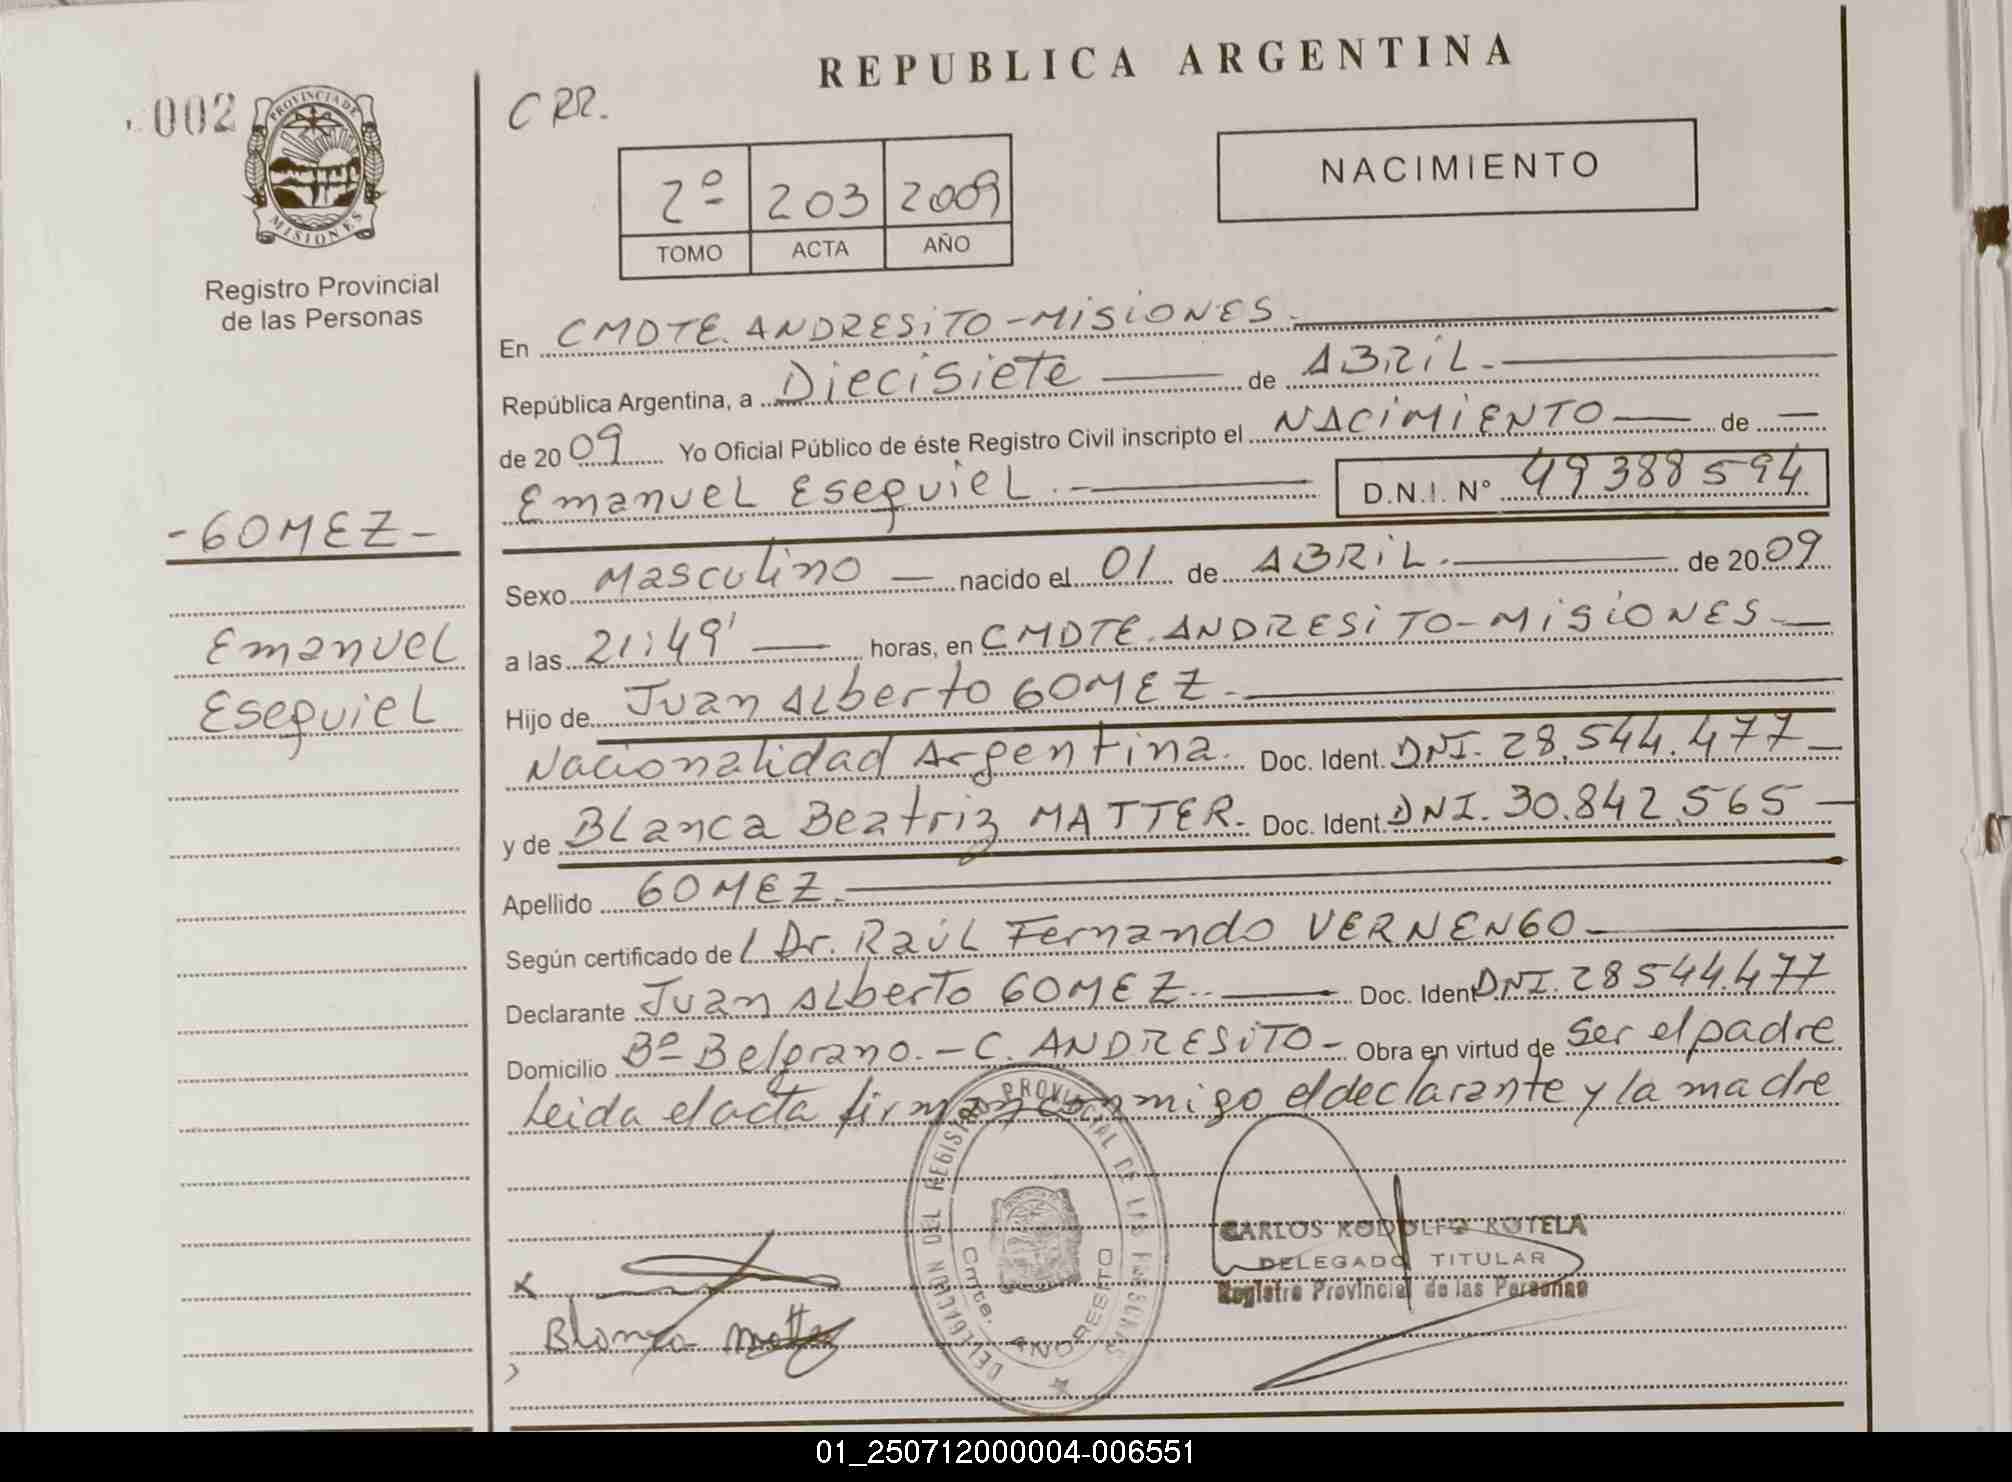 REPUBLICA ARGENTINA
002
PROVINCIA DE
MISIONES
Registro Provincial
de las Personas
CRR.
2º 203 2009
TOMO ACTA AÑO
NACIMIENTO
En CMDTE. ANDRESITO-MISIONES.
República Argentina, a Diecisiete de ABRIL.
de 2009 Yo Oficial Público de éste Registro Civil inscripto el NACIMIENTO de —
Emanuel Esequiel. D.N.I. Nº 49388594
-GOMEZ-
Emanuel
Esequiel
Sexo Masculino — nacido el 01 de ABRIL. de 2009
a las 21:49' — horas, en CMDTE. ANDRESITO-MISIONES.
Hijo de Juan Alberto GOMEZ.
Nacionalidad Argentina. Doc. Ident. DNI. 28.544.477
y de Blanca Beatriz MATTER. Doc. Ident. DNI. 30.842.565
Apellido GOMEZ.
Según certificado de l Dr. Raúl Fernando VERNENGO
Declarante Juan Alberto GOMEZ. Doc. Ident DNI. 28544.477
Domicilio Bº Belgrano.-C. ANDRESITO- Obra en virtud de ser el padre
Leida el acta firman conmigo el declarante y la madre
DELEGACION DEL REGISTRO PROVINCIAL DE LAS PERSONAS
Cmte. ANDRESITO
CARLOS RODOLFO ROTELA
DELEGADO TITULAR
Registro Provincial de las Personas
x
Blanca Matter
01_250712000004-006551